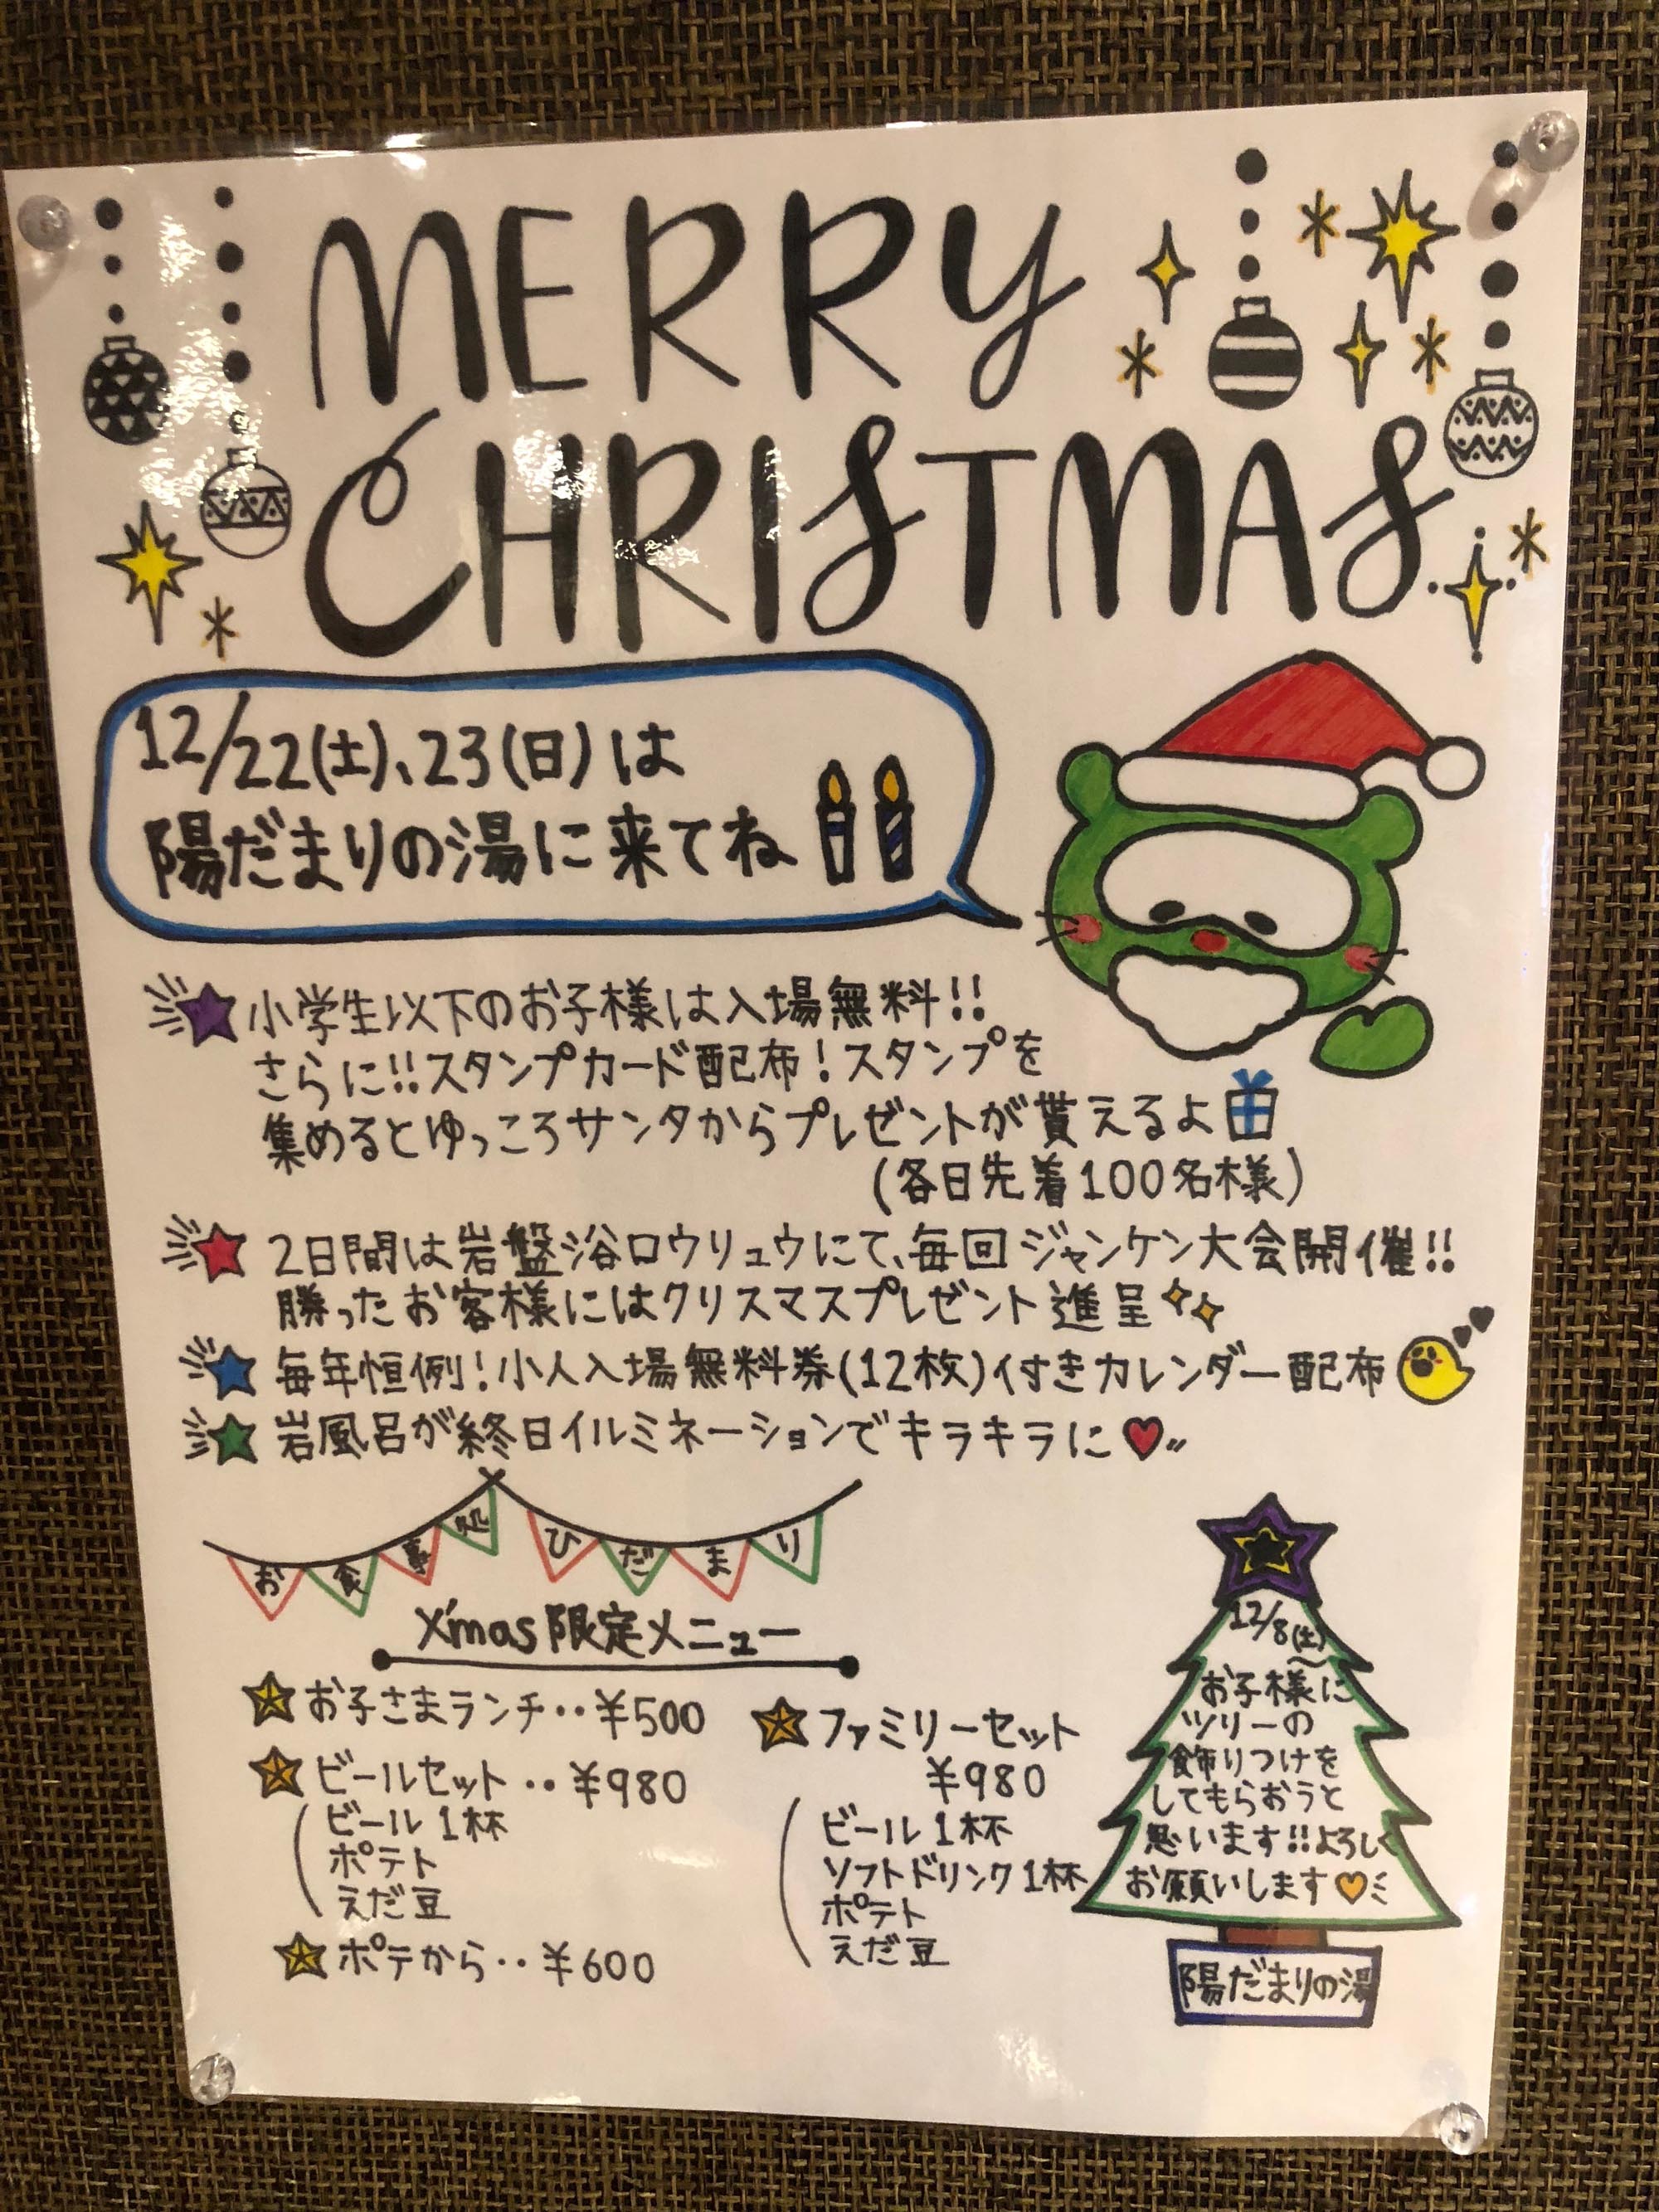 MERRY
CHRISTMAS
12/22(土)、23(日)は
陽だまりの湯に来てね
小学生以下のお子様は入場無料!!
さらに!!スタンプカード配布!スタンプを
集めるとゆっころサンタからプレゼントが貰えるよ
(各日先着100名様)
2日間は岩盤浴ロウリュウにて、毎回ジャンケン大会開催!!
勝ったお客様にはクリスマスプレゼント進呈
毎年恒例!小人入場無料券(12枚)付きカレンダー配布
岩風呂が終日イルミネーションでキラキラに
お食事処 ひだまり
X'mas限定メニュー
お子さまランチ‥¥500
ビールセット‥¥980
ビール1杯
ポテト
えだ豆
ポテから‥¥600
ファミリーセット
¥980
ビール1杯
ソフトドリンク1杯
ポテト
えだ豆
12/8(土)
～
お子様に
ツリーの
飾りつけを
してもらおうと
思います!!よろしく
お願いします
陽だまりの湯